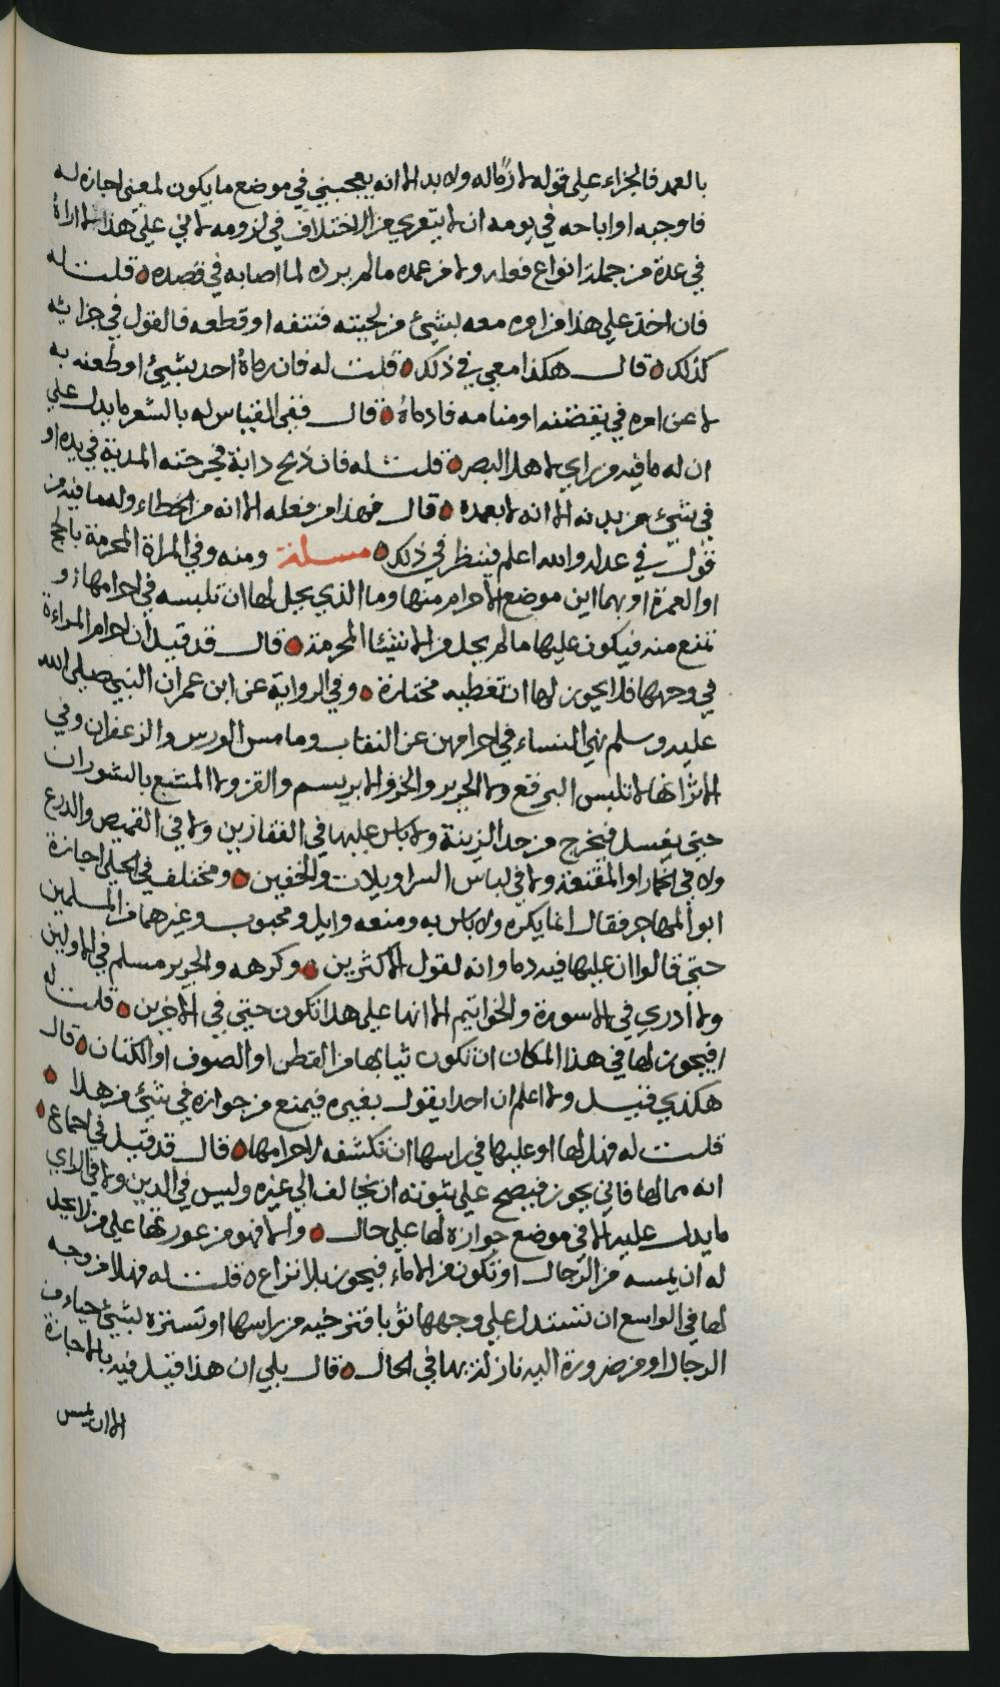 بالعمد فالجزاء على قوله لازما له ولابد الا انه يعجبني في موضع ما يكون لمعنى اجازه له
فاوجبه او اباحه في يومه ان لا يتعرى من الاختلاف في لزومه لانني على هذا لا اراه
في عدة من جملة انواع فعله ولا من عمده ما لم يرده لما اصابه في قصده ٥ قلت له
فان اخذ على هذا من امره معه لشيء من لحيته فنتفه او قطعه فالقول في جزائه
كذلك ٥ قال هكذا معي في ذلك ٥ قلت له فان رماه احد بشيء او طعنه به
لا عن امره في يقضته او منامه فادماه ٥ قال ففي القياس له بالشعر ما يدل على
ان له ما فيه من راي لاهل البصر ٥ قلت له فان ذبح دابة فجرحته المدية في يده او
في شيء من بدنه الا انه لا بعمده ٥ قال فهذا من فعله الا انه من الخطاء وله ما فيه من
قول في عدله والله اعلم فينظر في ذلك ٥ مسئلة ومنه وفي المراة المحرمة بالحج
او العمرة او بهما اين موضع الاحرام منها وما الذي يحل لها ان تلبسه في احرامها او
تمنع منه فيكون عليها ما لم يحل من الاشياء المحرمة ٥ قال قد قيل ان احرام المراءة
في وجهها فلا يجوز لها ان تغطيه مختارة ٥ وفي الرواية عن ابن عمر ان النبي صلى الله
عليه وسلم نهى النساء في احرامهن عن النقاب وما مس الورس والزعفران وفي
الاثر انها لا تلبس البرقع ولا الحرير والخز والابريسم والقز ولا المشبع بالشوران
حتى يغسل فيخرج من حد الزينة ولا باس عليها في القفازين ولا في القميص والدرع
ولا في الخمار او المقنعة ولا في لباس السراويلات والخفين ٥ ومختلف في الحلي اجازة
ابو المهاجر فقال انما يكره ولا باس به ومنعه وايل ومحبوب وغيرهما من المسلمين
حتى قالوا ان عليها فيه دما وانه لقول الاكثرين ٥ وكرهه والحرير مسلم في الاولين
ولا ادري في الاسورة والخواتيم الا انها على هذا تكون حتى في الاخرين ٥ قلت له
افيجوز لها في هذا المكان ان تكون ثيابها من القطن او الصوف او الكتان ٥ قال
هكذي قيل ولا اعلم ان احدا يقول بغيره فيمنع من جوازه في شيء من هذا ٥
قلت له فهل لها او عليها في راسها ان تكشفه لاحرامها ٥ قال قد قيل في اجماع ٥
انه مما لها فانى يجوز فيصح على ثبوته ان يخالف الى غيره وليس في الدين ولا في الراي
ما يدل عليه الا في موضع جوازه لها على حال ٥ والا فهو من عورتها على من لا يحل
له ان يمسه من الرجال او تكون من الاماء فيجوز بلا نزاع ٥ قلت له فهلا من وجه
لها في الواسع ان تستدل على وجهها ثوبا فترخيه من راسها او تستره لشيء حياء من
الرجال او من ضرورة اليه نازلة بها في الحال ٥ قال بلى ان هذا قيل فيه بالاجازة
الا ان يمس